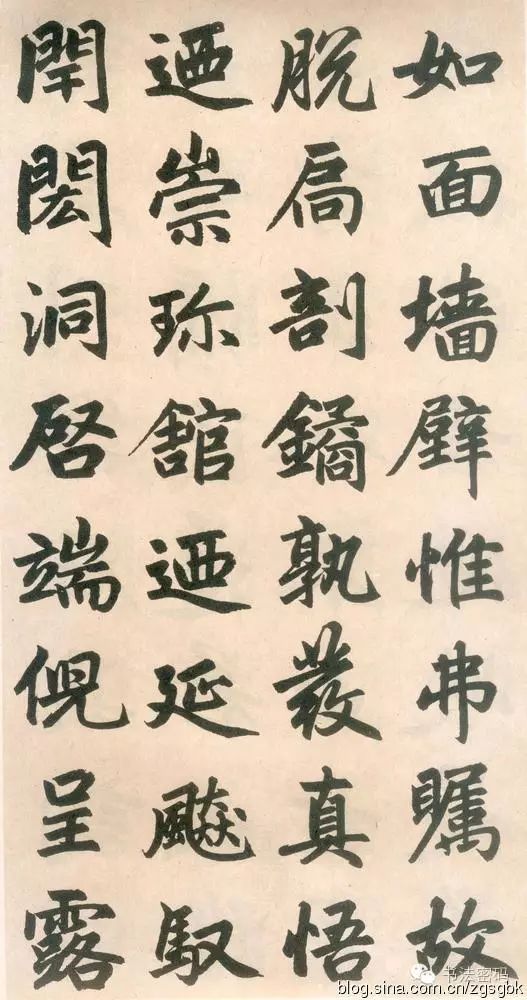 如面墙壁惟弗瞩故
脱扃剖鐍孰發真悟
迺崇珎舘迺延飈馭
閈閎洞啓端倪呈露
书法密码
blog.sina.com.cn/zgsgbk